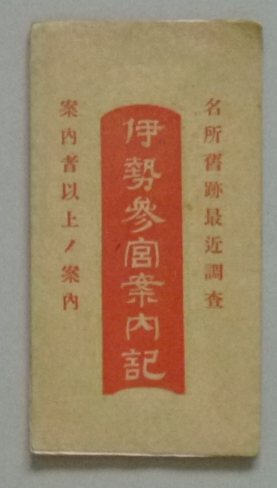 名所舊跡最近調査
伊勢參宮案内記
案内者以上ノ案内